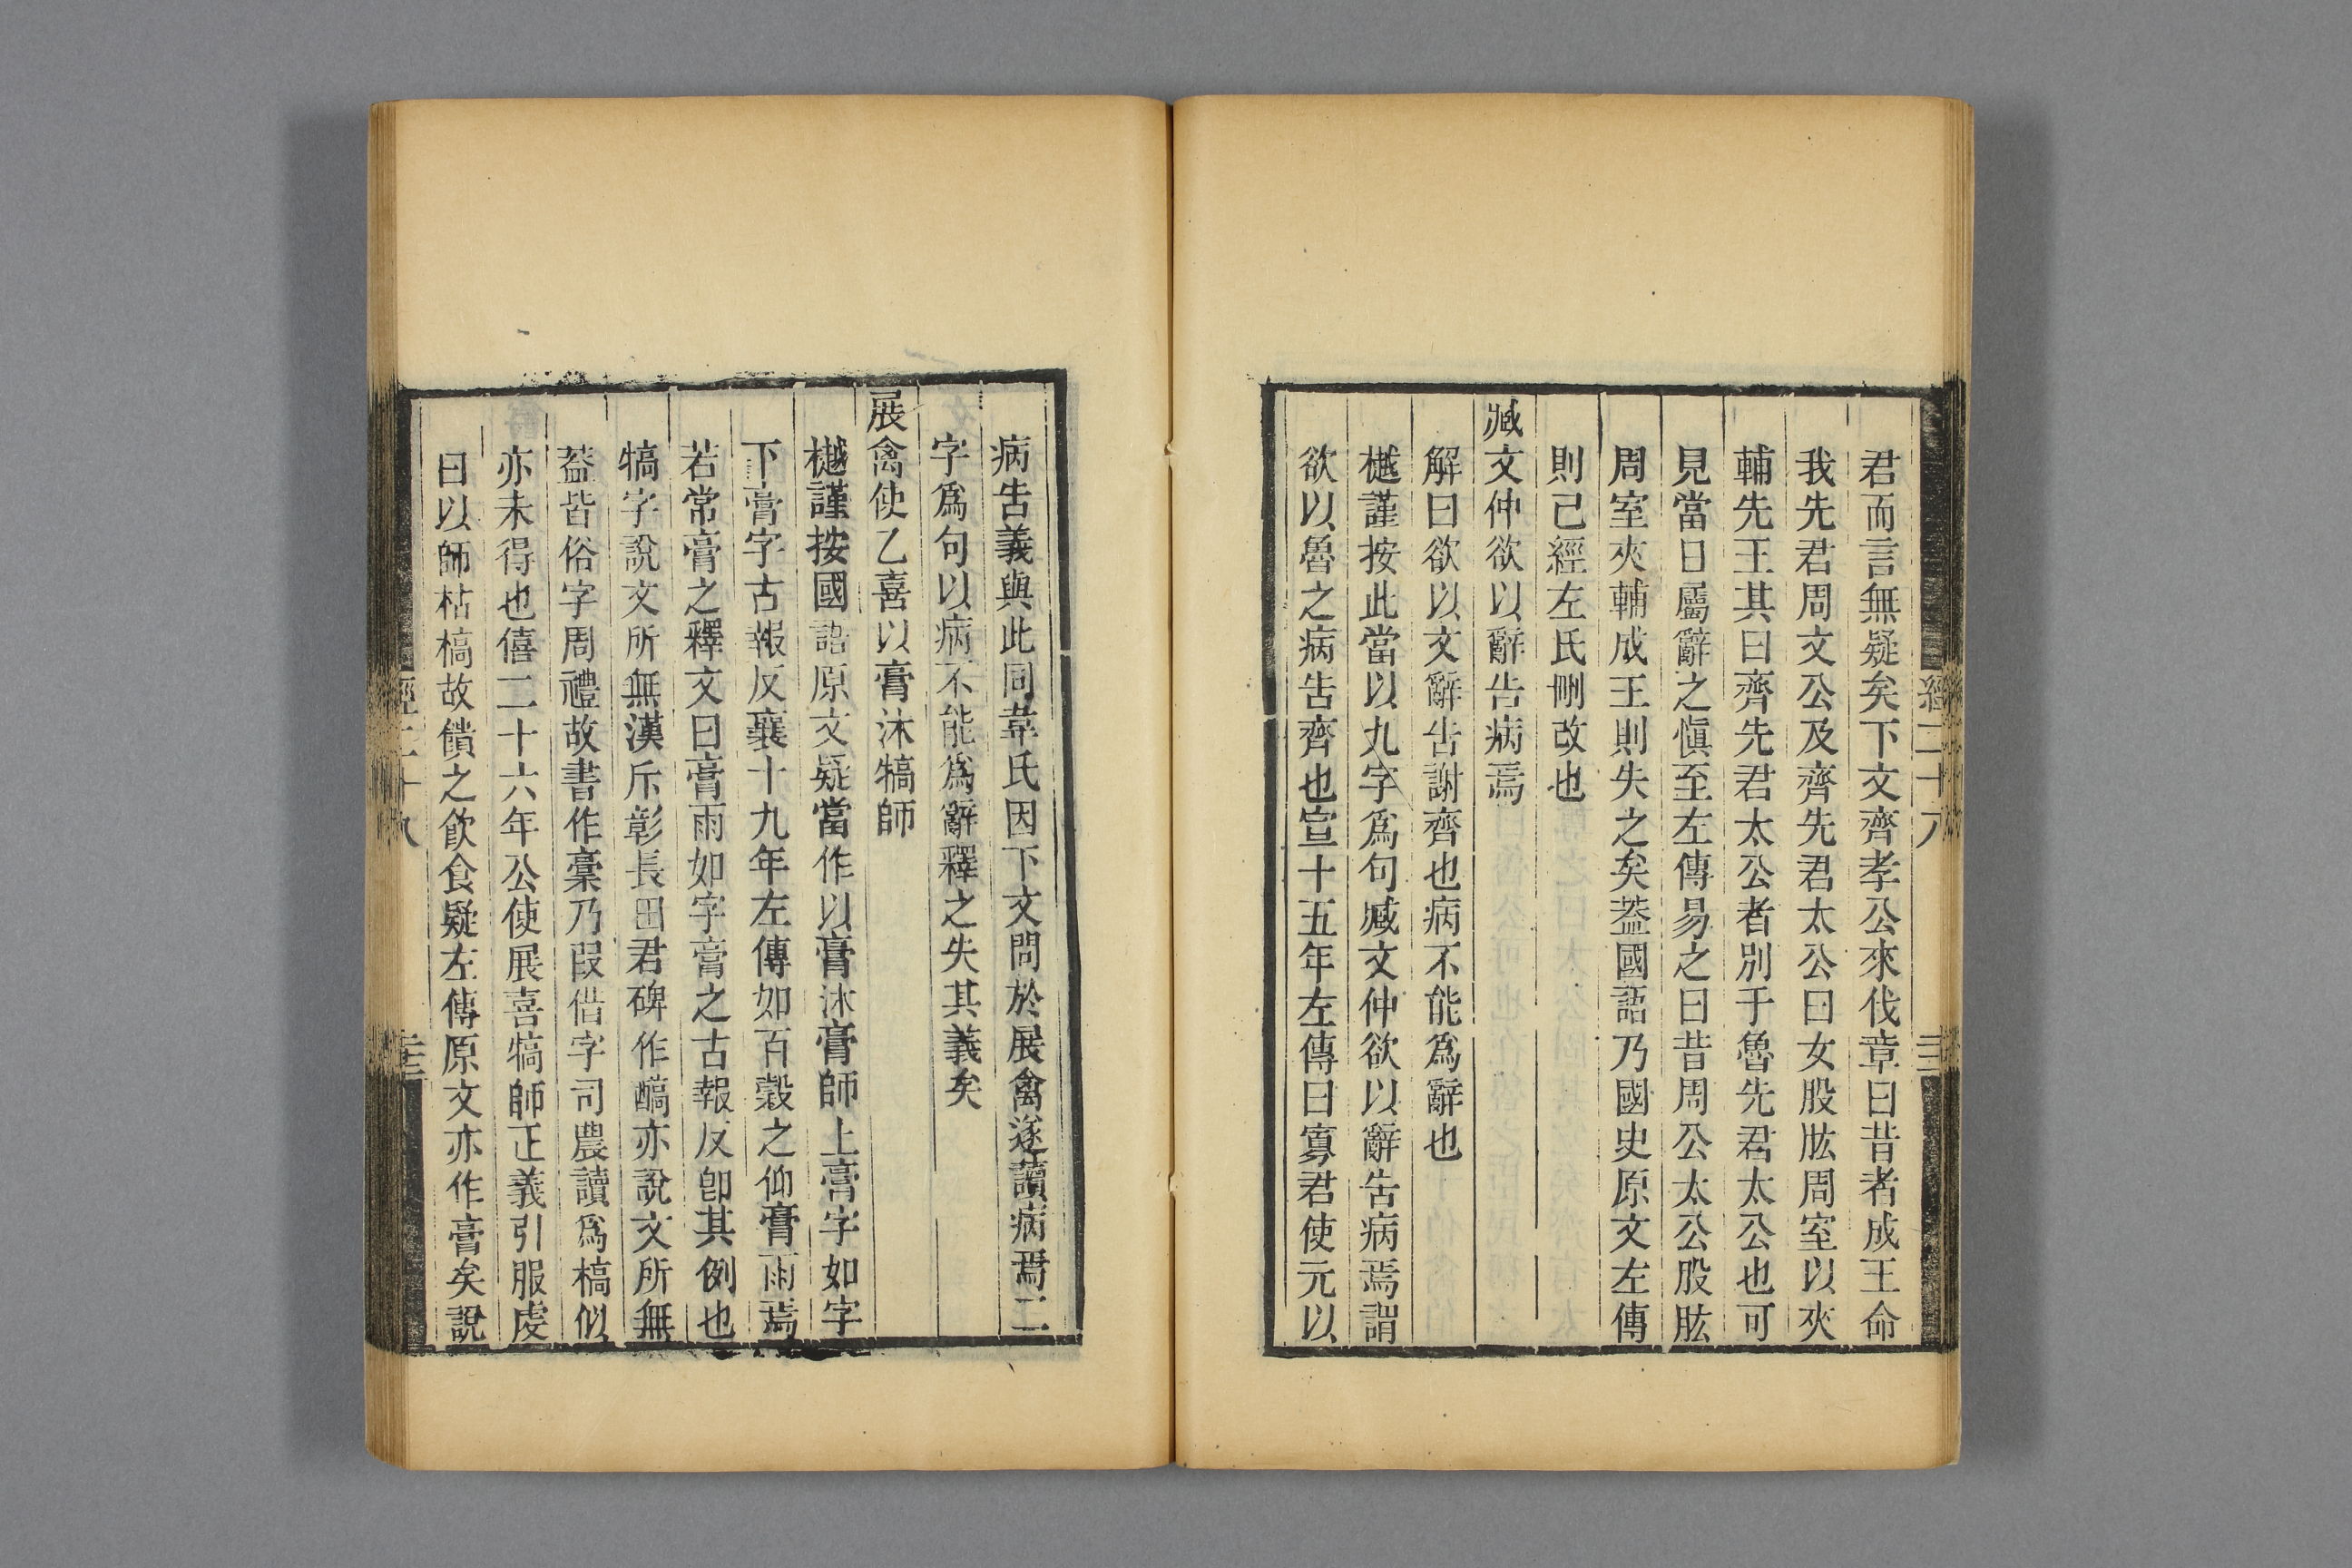 君而言無疑矣下文齊孝公來伐章曰昔者成王命
我先君周文公及齊先君太公曰女股肱周室以夾
輔先王其曰齊先君太公者別于魯先君太公也可
見當日屬辭之愼至左傳易之曰昔周公太公股肱
周室夾輔成王則失之矣葢國語乃國史原文左傳
則已經左氏刪改也
臧文仲欲以辭告病焉
解曰欲以文辭告謝齊也病不能爲辭也
樾謹按此當以九字爲句臧文仲欲以辭告病焉謂
欲以魯之病告齊也宣十五年左傳曰寡君使元以
病告義與此同韋氏因下文問於展禽遂讀病焉二
字爲句以病不能爲辭釋之失其義矣
展禽使乙喜以膏沐犒師
樾謹按國語原文疑當作以膏沐膏師上膏字如字
下膏字古報反襄十九年左傳如百穀之仰膏雨焉
若常膏之釋文曰膏雨如字膏之古報反卽其例也
犒字說文所無漢斥彰長田君碑作醕亦說文所無
葢皆俗字周禮故書作槀乃叚借字司農讀爲槁似
亦未得也僖二十六年公使展喜犒師正義引服虔
曰以師枯槁故饋之飮食疑左傳原文亦作膏矣說
經二十八